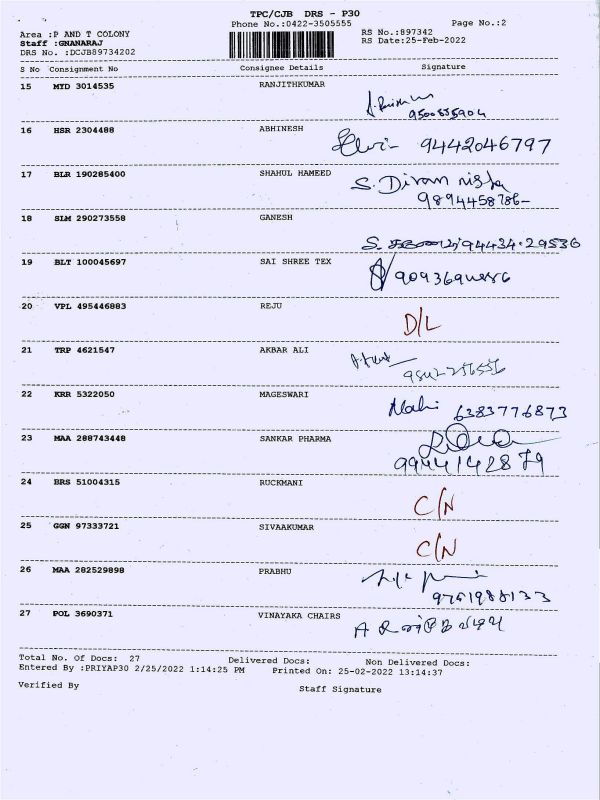 TPC/CJB DRS - P30
Phone No.:0422-3505555
Page No.:2
Area :P AND T COLONY
RS No.:897342
Staff :GNANARAJ
RS Date:25-Feb-2022
DRS No. :DCJB89734202
S No Consignment No Consignee Details Signature
15 MYD 3014535 RANJITHKUMAR
9500535904
16 HSR 2304488 ABHINESH
9442046797
17 BLR 190285400 SHAHUL HAMEED
S. Divan nisha
9894458786-
18 SLM 290273558 GANESH
94434.29536
19 BLT 100045697 SAI SHREE TEX
20 VPL 495446883 REJU
D/L
21 TRP 4621547 AKBAR ALI
22 KRR 5322050 MAGESWARI
Mahi 6383776873
23 MAA 288743448 SANKAR PHARMA
9944142879
24 BRS 51004315 RUCKMANI
C/N
25 GGN 97333721 SIVAAKUMAR
C/N
26 MAA 282529898 PRABHU
27 POL 3690371 VINAYAKA CHAIRS
Total No. Of Docs: 27 Delivered Docs: Non Delivered Docs:
Entered By :PRIYAP30 2/25/2022 1:14:25 PM Printed On: 25-02-2022 13:14:37
Verified By Staff Signature